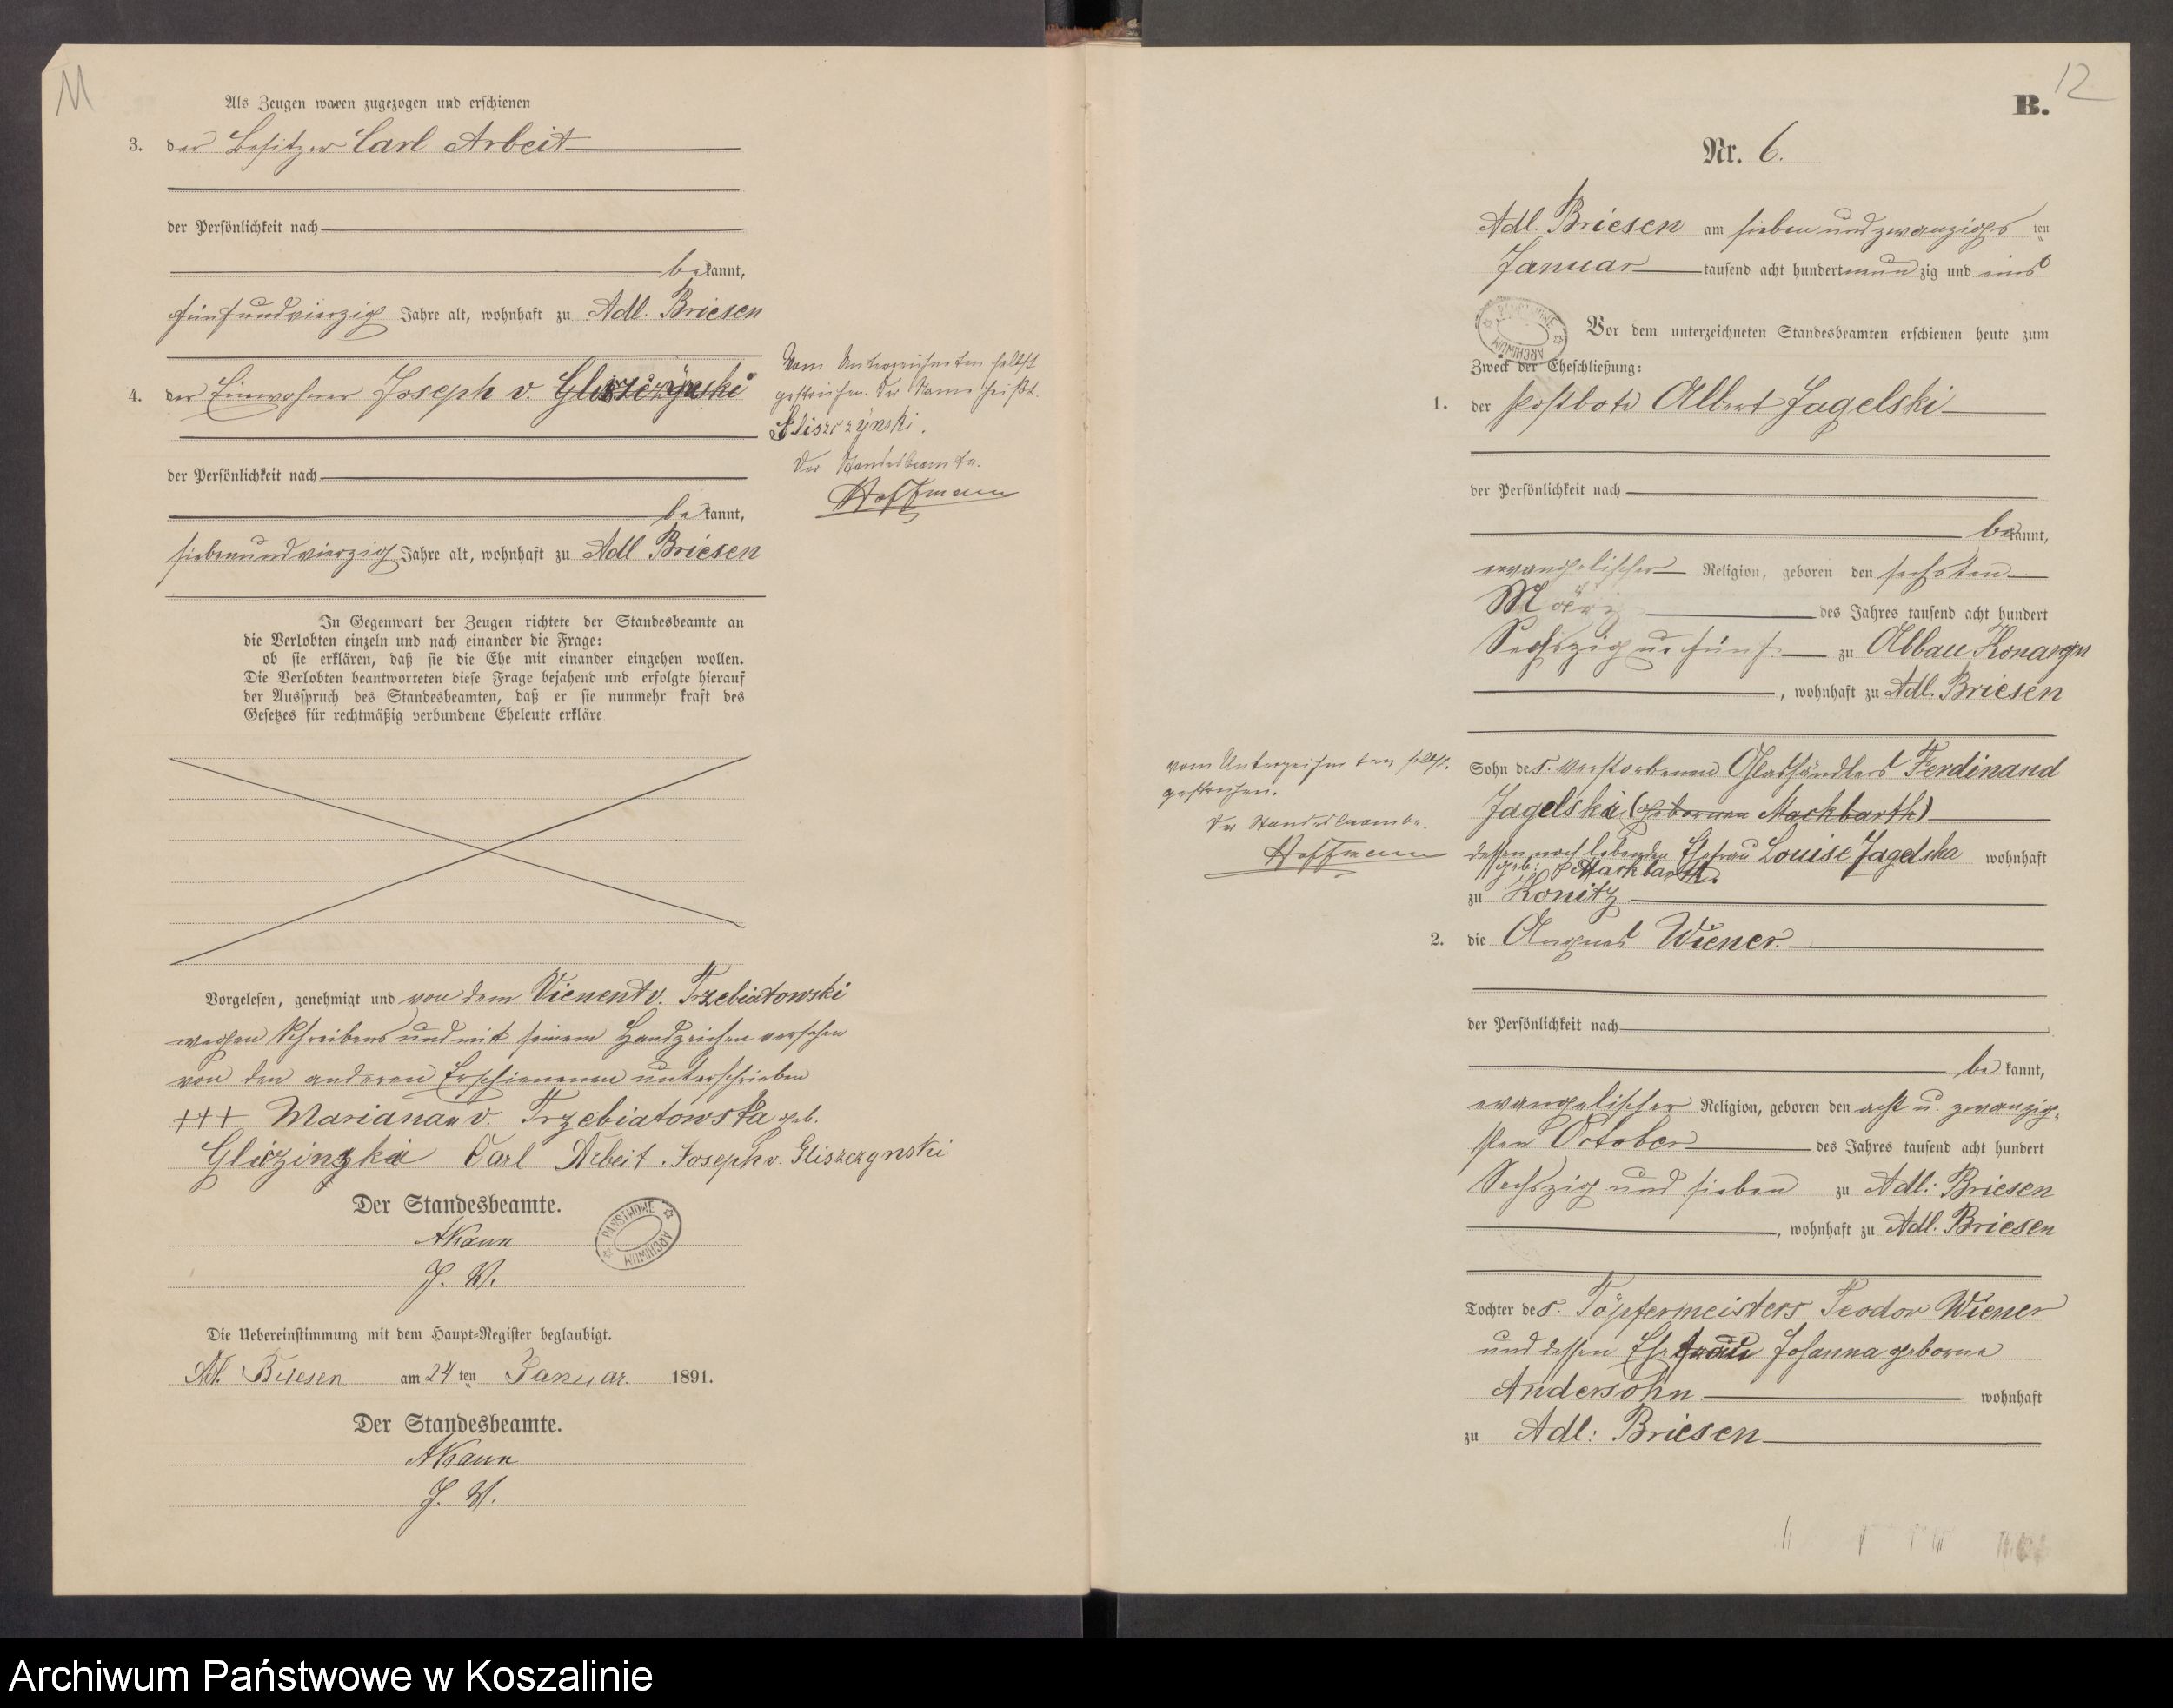 11
Als Zeugen waren zugezogen und erschienen
3. der Besitzer Carl Arbeit
der Persönlichkeit nach
bekannt,
fünfundvierzig Jahre alt, wohnhaft zu Adl. Briesen
4. der Einwohner Joseph v. Gliszczynski
der Persönlichkeit nach
bekannt,
siebenundvierzig Jahre alt, wohnhaft zu Adl Briesen
Vom Unterzeichneten selbst
gestrichen. Der Name heißt.
Gliszczÿnski.
Der Standesbeamte.
Hoffmann
In Gegenwart der Zeugen richtete der Standesbeamte an
die Verlobten einzeln und nach einander die Frage:
ob sie erklären, daß sie die Ehe mit einander eingehen wollen.
Die Verlobten beantworteten diese Frage bejahend und erfolgte hierauf
der Ausspruch des Standesbeamten, daß er sie nunmehr kraft des
Gesetzes für rechtmäßig verbundene Eheleute erkläre
Vorgelesen, genehmigt und von dem Vicent v. Trzebiatowski
wegen Schreibens und mit seinem Handzeichen versehen
von den anderen Erschienenen unterschrieben
+++ Mariana v. Trzebiatowska geb.
Glizinzka Carl Arbeit. Joseph v. Gliszczynski
Der Standesbeamte.
AKann
J. V.
PAŃSTWOWE ARCHIWUM
Die Uebereinstimmung mit dem Haupt-Register beglaubigt.
Adl. Briesen am 24 ten Januar. 1891.
Der Standesbeamte.
AKann
J. V.
12
B.
Nr. 6.
Adl. Briesen am siebenundzwanzigs ten
Januar tausend acht hundert neun zig und eins
Vor dem unterzeichneten Standesbeamten erschienen heute zum
Zweck der Eheschließung:
1. der Postbote Albert Jagelski
der Persönlichkeit nach
bekannt,
evangelischer Religion, geboren den sechsten
März des Jahres tausend acht hundert
Sechszig u. fünf zu Abbau Konarzyn
, wohnhaft zu Adl. Briesen
Sohn des verstorbenen Glashändlers Ferdinand
Jagelski (geborenen Mackbarth)
dessen noch lebenden Ehefrau Louise Jagelska wohnhaft
geb: Mackbarth.
zu Konitz
vom Unterzeichneten selbst.
gestrichen.
Der Standesbeamte.
Hoffmann
2. die Agnes Wiener.
der Persönlichkeit nach
bekannt,
evangelischer Religion, geboren den acht u. zwanzig-
sten October des Jahres tausend acht hundert
Sechszig und sieben zu Adl: Briesen
, wohnhaft zu Adl. Briesen
Tochter des Töpfermeisters Teodor Wiener
und dessen Ehefrau Johanna geborne
Andersohn wohnhaft
zu Adl: Briesen
Archiwum Państwowe w Koszalinie